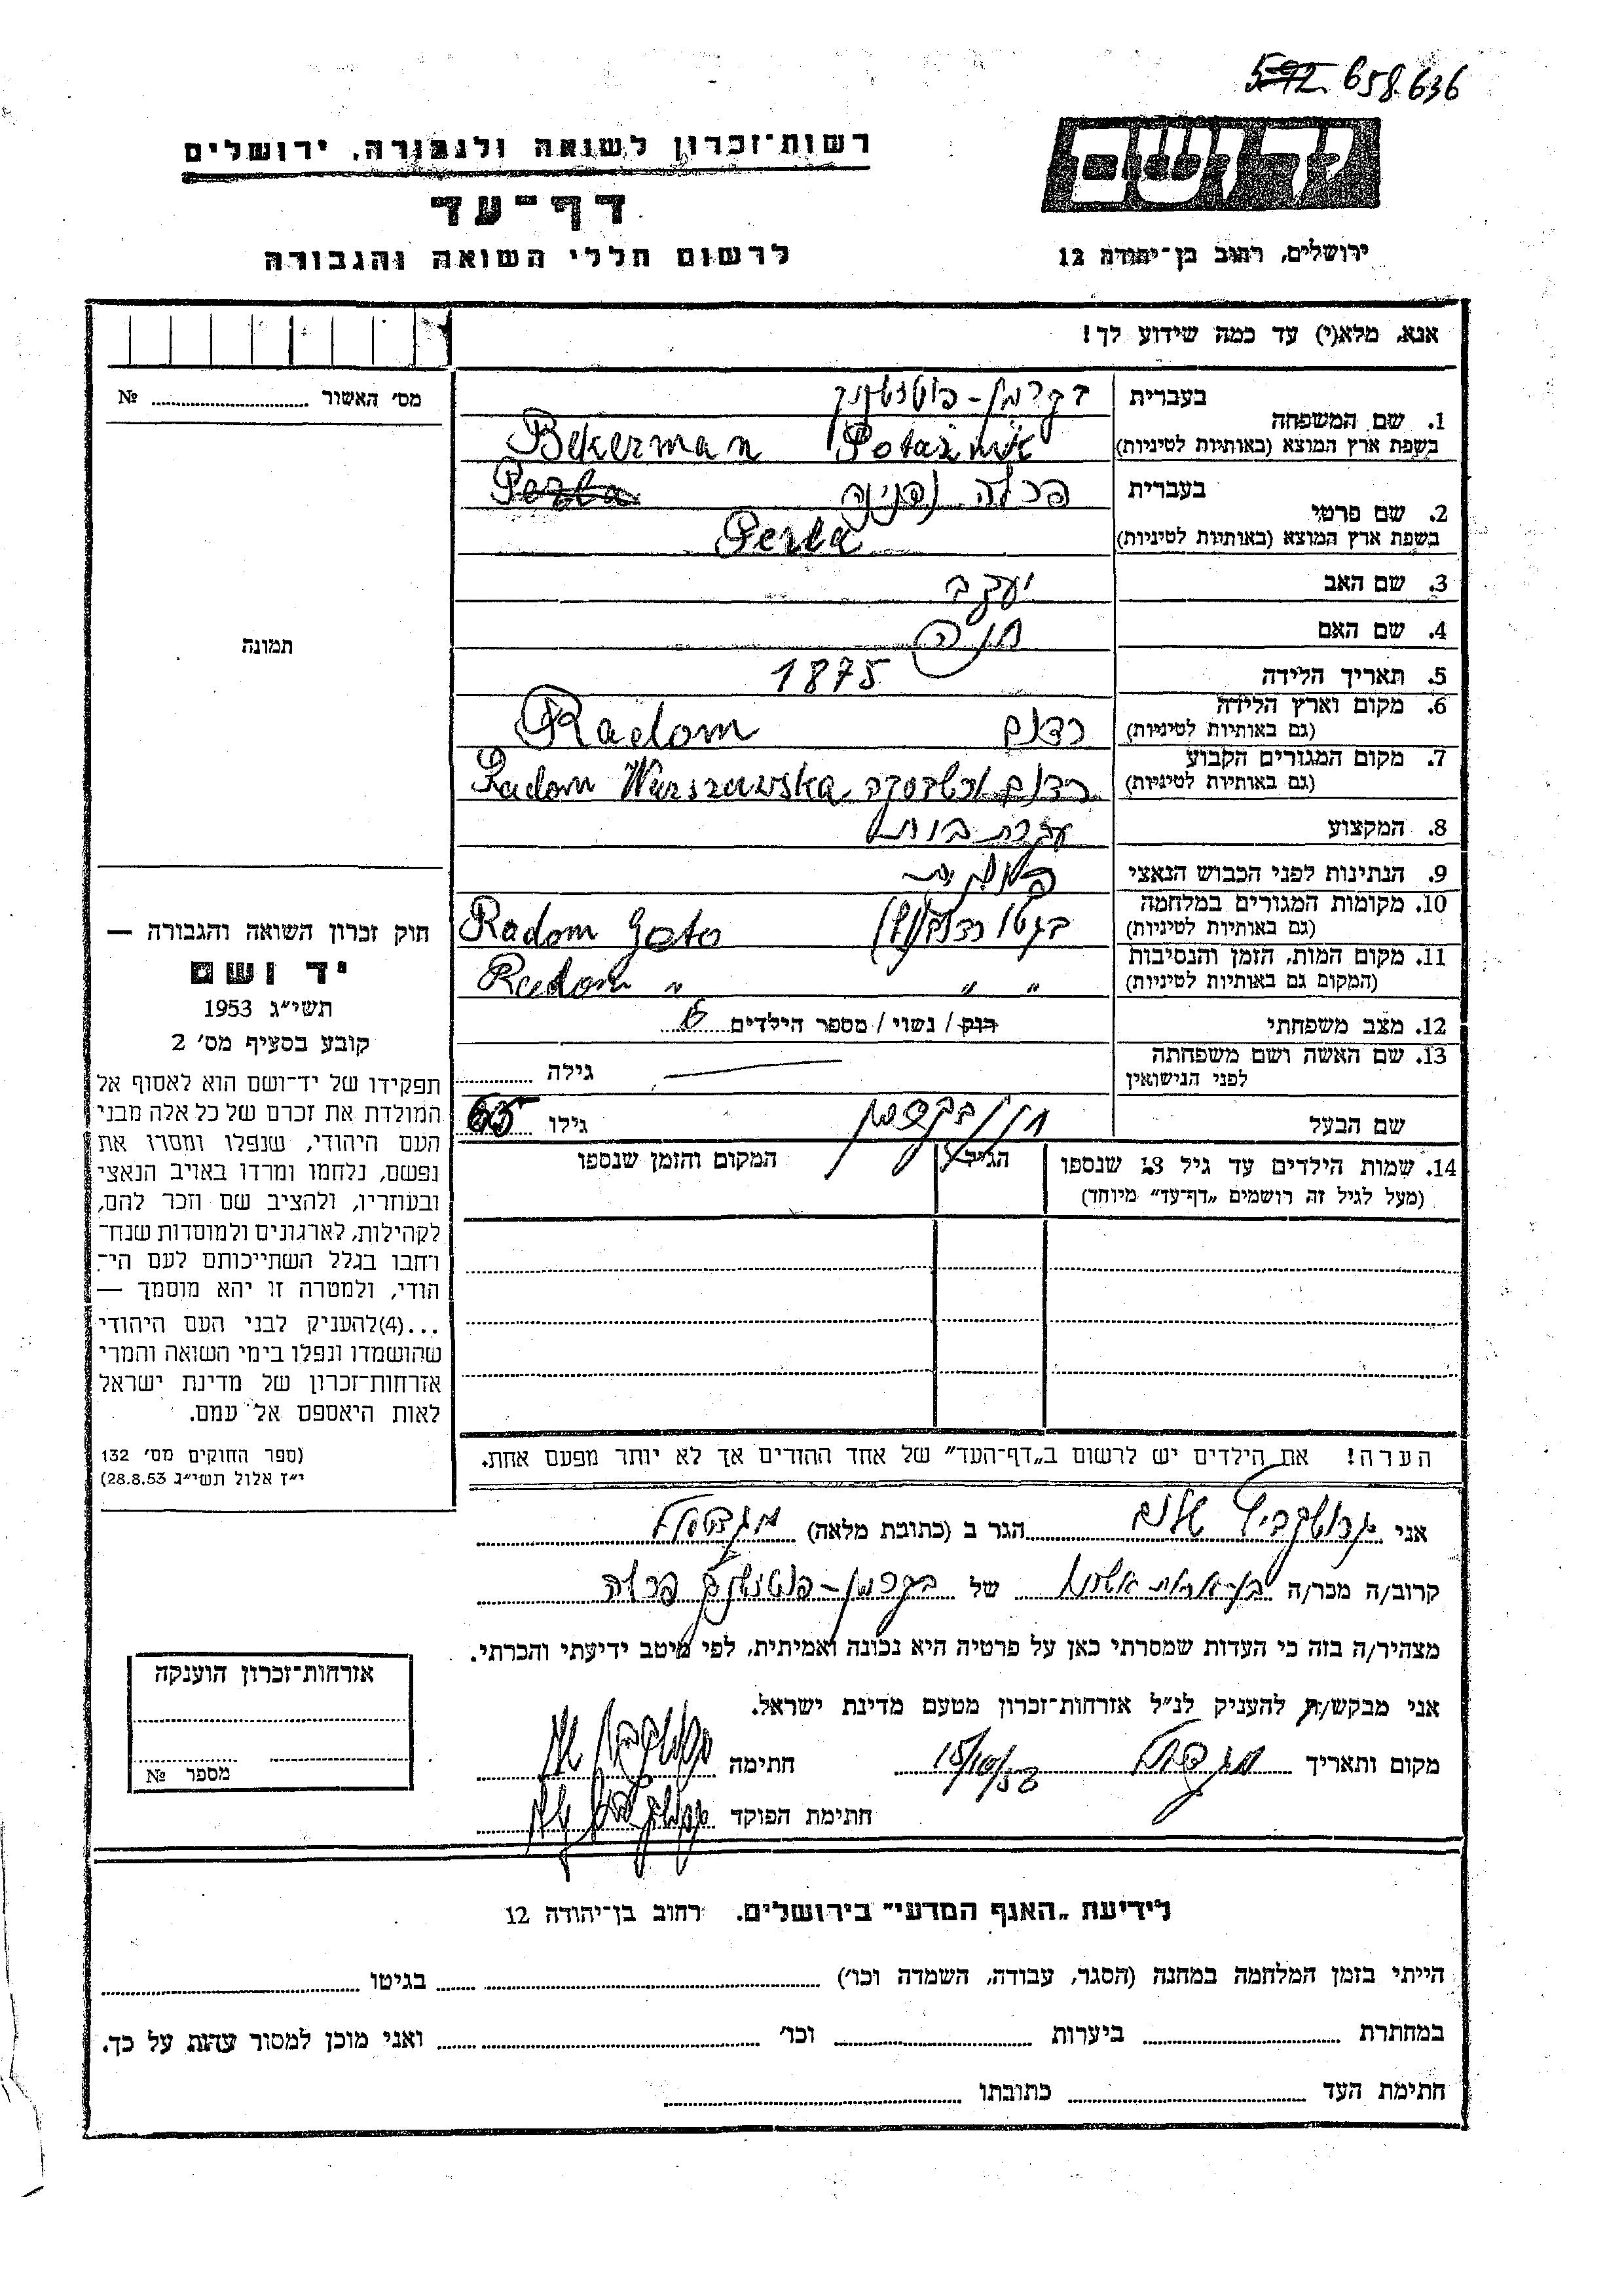 592 658.636
רשות־זכרון לשואה ולגבורה, ירושלים
דף־עד
לרשום חללי השואה והגבורה
יד ושם
ירושלים, רחוב בן־יהודה 12
אנא, מלא(י) עד כמה שידוע לך!
מס' האשור № 
1. שם המשפחה
בעברית בקרמן-פוטזניק
בשפת ארץ המוצא (באותיות לטיניות) Bekerman Potażnik
2. שם פרטי
בעברית פרלה (פנינה Perla
בשפת ארץ המוצא (באותיות לטיניות) Perla
3. שם האב יעקב
4. שם האם חנה
5. תאריך הלידה 1875
6. מקום וארץ הלידה
(גם באותיות לטיניות) רדום Radom
7. מקום המגורים הקבוע
(גם באותיות לטיניות) רדום Radom Warszawska
8. המקצוע עקרת בית
9. הנתינות לפני הכבוש הנאצי
10. מקומות המגורים במלחמה
(גם באותיות לטיניות) בגטו Radom Geto
11. מקום המות, הזמן והנסיבות
(המקום גם באותיות לטיניות) " " Radom "
12. מצב משפחתי רוק / נשוי / מספר הילדים
13. שם האשה ושם משפחתה
לפני הנישואין גילה
שם הבעל בקרמן גילו 65
14. שמות הילדים עד גיל 18 שנספו הגיל המקום והזמן שנספו
(מעל לגיל זה רושמים „דף־עד" מיוחד)
הערה! את הילדים יש לרשום ב„דף־העד" של אחד ההורים אך לא יותר מפעם אחת.
תמונה
חוק זכרון השואה והגבורה —
יד ושם
תשי"ג 1953
קובע בסעיף מס' 2
תפקידו של יד־ושם הוא לאסוף אל
המולדת את זכרם של כל אלה מבני
העם היהודי, שנפלו ומסרו את
נפשם, נלחמו ומרדו באויב הנאצי
ובעוזריו, ולהציב שם וזכר להם,
לקהילות, לארגונים ולמוסדות שנח־
רחבו בגלל השתייכותם לעם הי־
הודי, ולמטרה זו יהא מוסמך —
...(4) להעניק לבני העם היהודי
שהושמדו ונפלו בימי השואה והמרי
אזרחות־זכרון של מדינת ישראל
לאות היאספם אל עמם.
(ספר החוקים מס' 132
י"ז אלול תשי"ג 28.8.53)
אני שלום הגר ב (כתובת מלאה) מגדיאל
קרוב/ה מכר/ה של בקרמן-פוטזניק פרלה
מצהיר/ה בזה כי העדות שמסרתי כאן על פרטיה היא נכונה ואמיתית, לפי מיטב ידיעתי והכרתי.
אני מבקש/ת להעניק לנ"ל אזרחות־זכרון מטעם מדינת ישראל.
מקום ותאריך מגדיאל חתימה
חתימת הפוקד
אזרחות־זכרון הוענקה
מספר №
לידיעת „האגף המדעי" בירושלים. רחוב בן־יהודה 12
הייתי בזמן המלחמה במחנה (הסגר, עבודה, השמדה וכו') בגיטו
במחתרת ביערות וכו' ואני מוכן למסור עדות על כך.
חתימת העד כתובתו